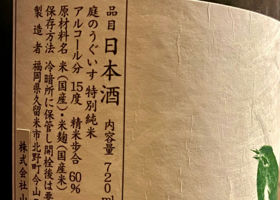 品目 日本酒 内容量 720ml
庭のうぐいす 特別純米
アルコール分 15度 精米歩合 60%
原材料名 米(国産)・米麹(国産米)
保存方法 冷暗所に保管し開栓後は要
製造者 福岡県久留米市北野町今山
株式会社 山